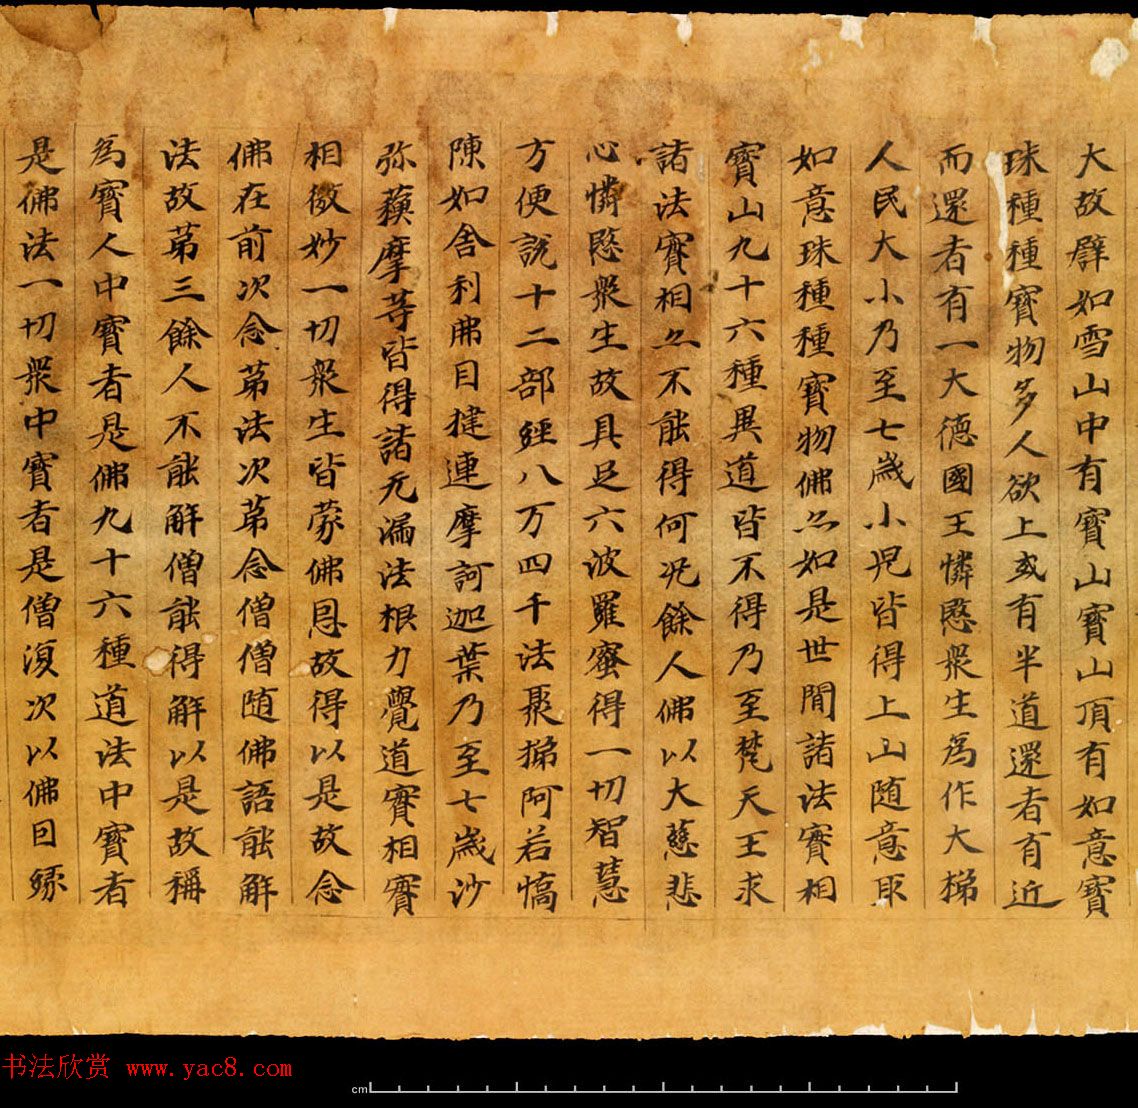 大故譬如雪山中有寳山寳山頂有如意寳
珠種種寳物多人欲上或有半道還者有近
而還者有一大德國王憐愍衆生為作大梯
人民大小乃至七歲小児皆得上山随意取
如意珠種種寳物佛亦如是世間諸法實相
寳山九十六種異道皆不得乃至梵天王求
諸法實相亦不能得何况餘人佛以大慈悲
心憐愍衆生故具足六波羅蜜得一切智慧
方便說十二部經八万四千法聚梯阿若憍
陳如舍利弗目揵連摩訶迦葉乃至七歲沙
弥蘓摩等皆得諸无漏法根力覺道實相實
相微妙一切衆生皆蒙佛恩故得以是故念
佛在前次念苐法次苐念僧僧随佛語能解
法故苐三餘人不能解僧能得解以是故稱
為寳人中寳者是佛九十六種道法中寳者
是佛法一切衆中寳者是僧復次以佛因緣
书法欣赏 www.yac8.com
cm